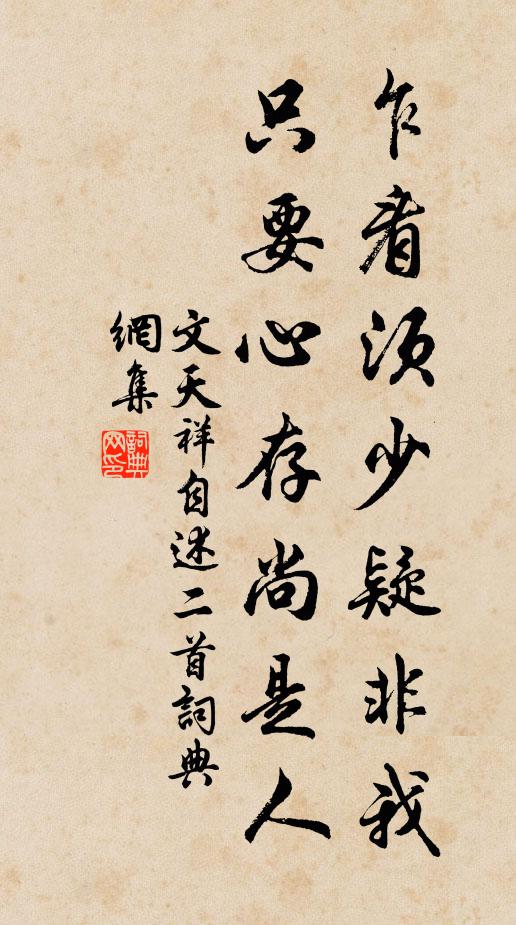 乍看須少疑非我
只要心存尚是人
文天祥自述二首詞典
網集
詞典网印